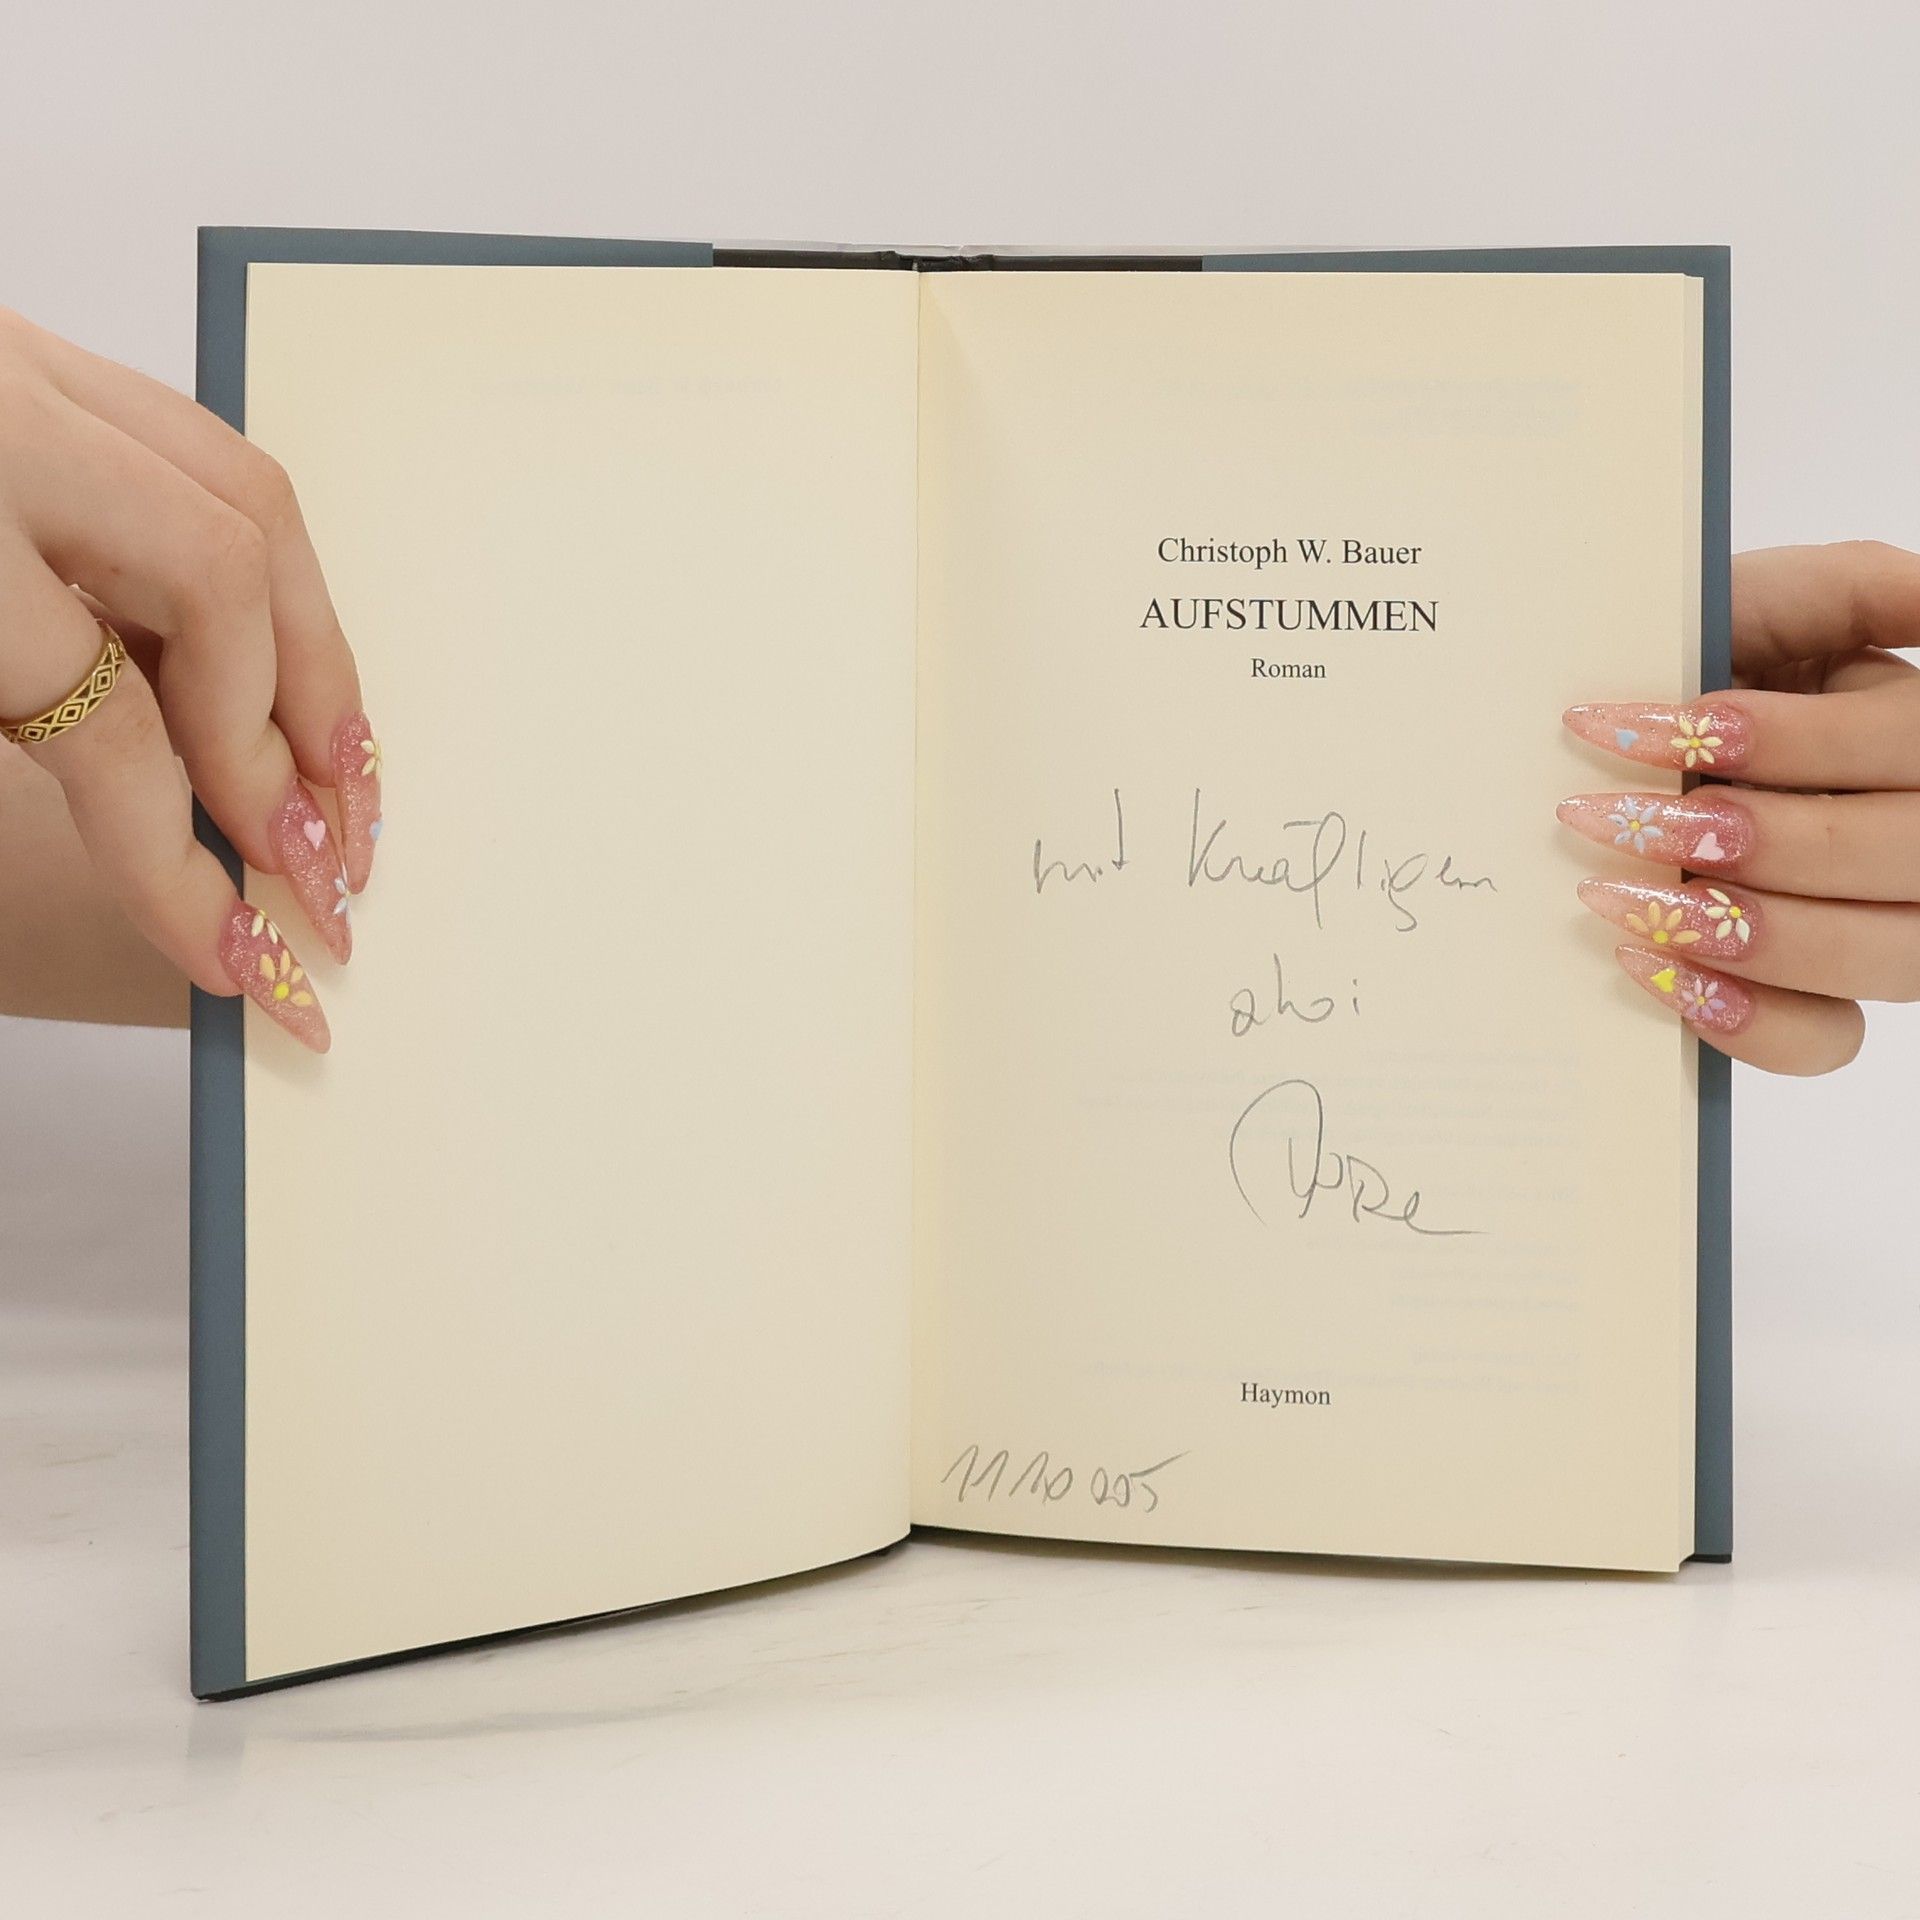 Christoph W. Bauer
AUFSTUMMEN
Roman
mit kräftigem
ahoi
Haymon
11 10 005